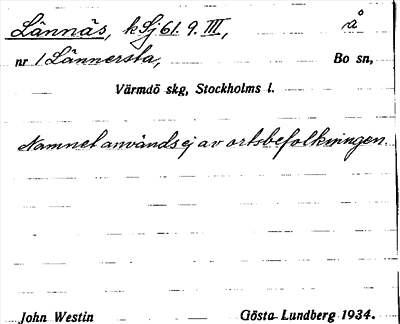 Lännäs, k Sj 61. 9. III, å
nr 1 Lännersta, Bo sn,
Värmdö skg, Stockholms l.
Namnet används ej av ortsbefolkningen.
John Westin Gösta Lundberg 1934.